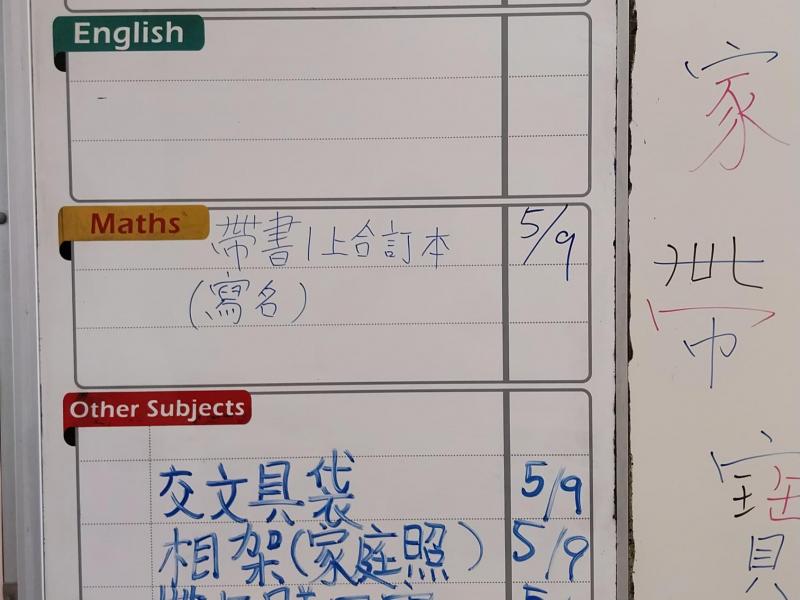 English
Maths
帶書1上合訂本 5/9
(寫名)
Other Subjects
交文具袋 5/9
相架(家庭照) 5/9
家
帶
寶